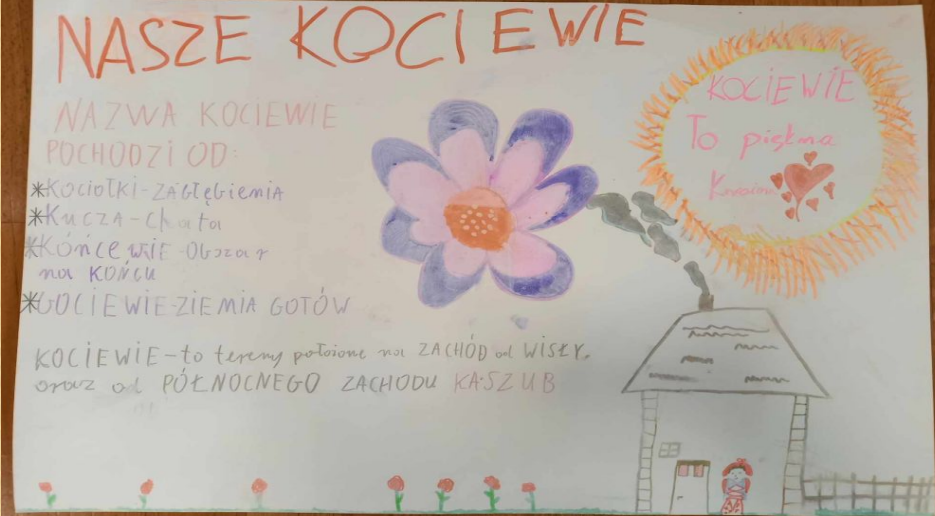 NASZE KOCIEWIE
NAZWA KOCIEWIE
POCHODZI OD:
*KOCIOŁKI-ZAGŁĘBIENIA
*KUCZA-Chata
*KOŃCEWIE-Obszar
na KOŃCU
*GOCIEWIE-ZIEMIA GOTÓW
KOCIEWIE-to tereny położone na ZACHÓD od WISŁY,
oraz od PÓŁNOCNEGO ZACHODU KASZUB
KOCIEWIE
To piękna
Kraina